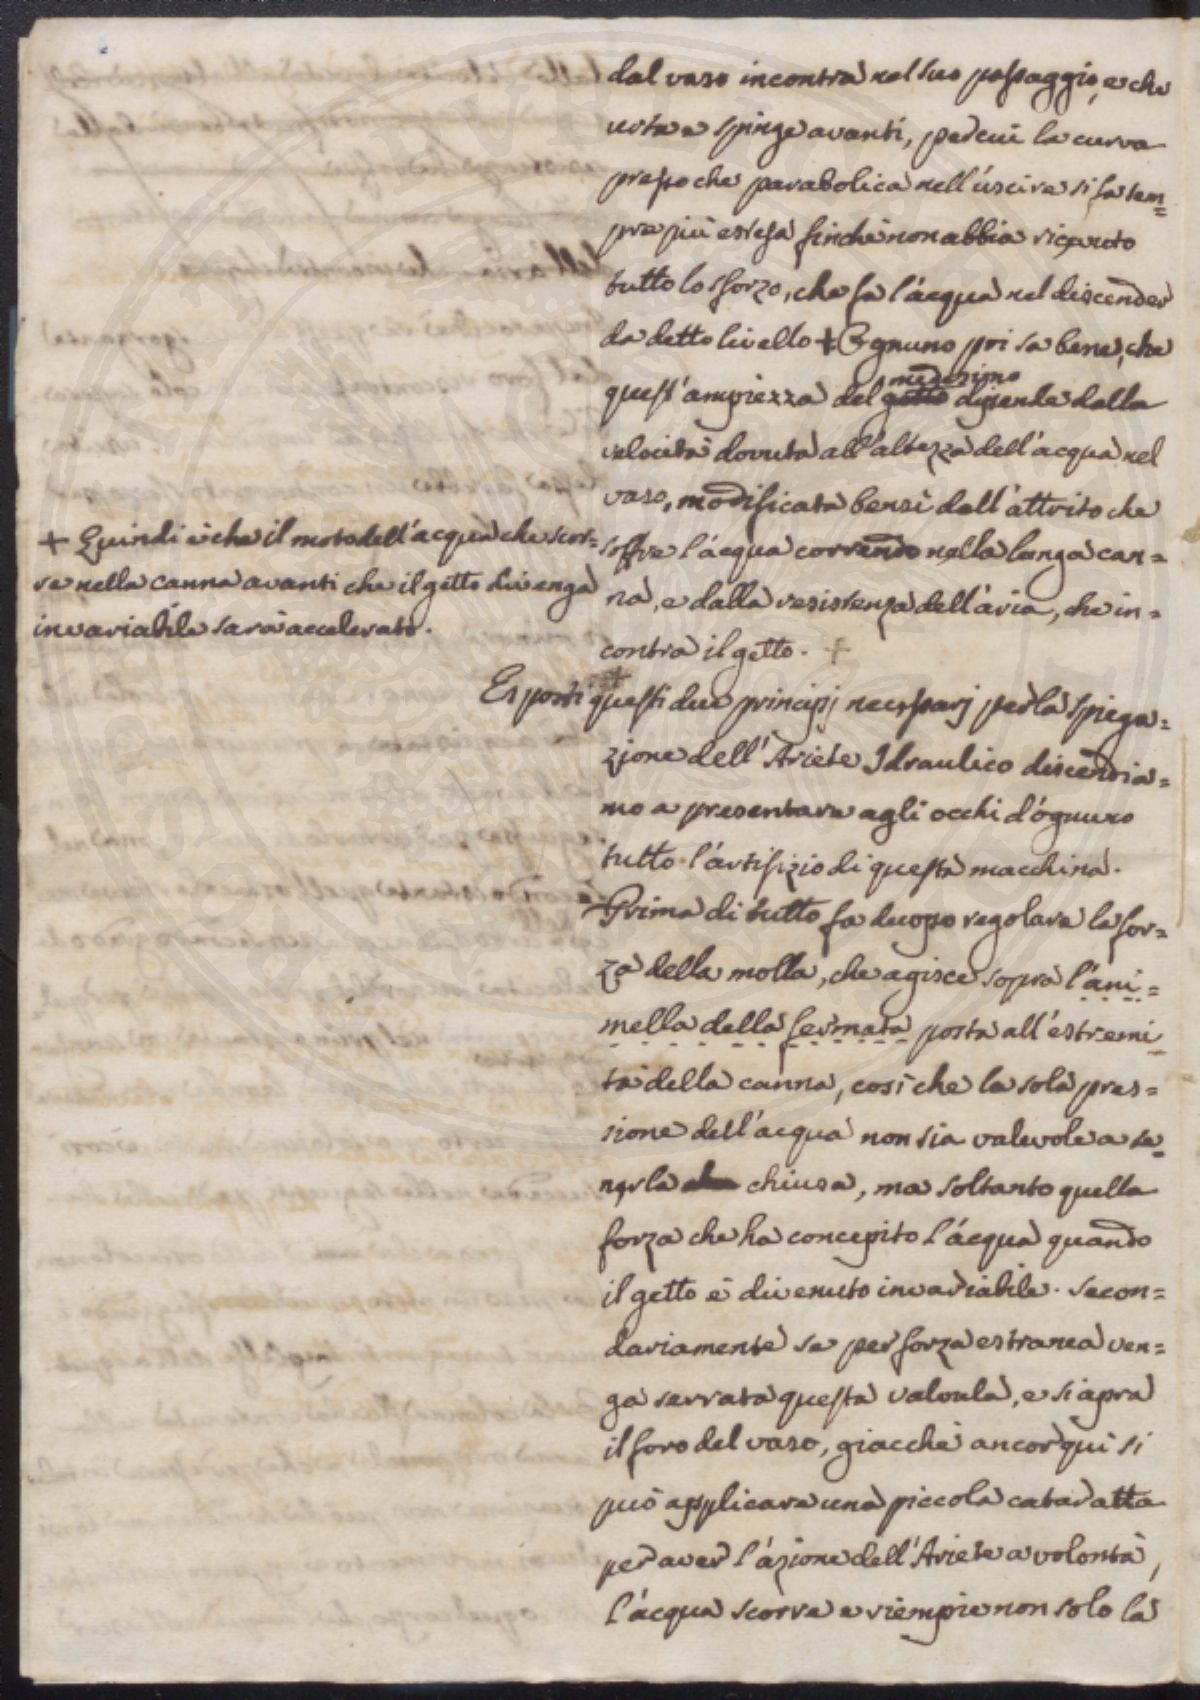 dal vaso incontra nel suo passaggio, e che
urta e spinge avanti, per cui la curva
presso che parabolica nell'uscire si fa sem=
pre più estesa finchè non abbia ricevuto
tutto lo sforzo, che fa l'acqua nel discender
da detto livello + Ognuno poi sa bene, che
quest'ampiezza del getto medesimo dipende dalla
velocità dovuta all'altezza dell'acqua nel
vaso, modificata bensì dall'attrito che
soffre l'acqua correndo nella lunga can=
na, e dalla resistenza dell'aria, che in=
contra il getto. +
+ Quindi è che il moto dell'acqua che scor=
re nella canna avanti che il getto divenga
invariabile sarà accelerato.
Esposti questi due principj necessarj per la spiega=
zione dell'Ariete Idraulico discendia=
mo a presentare agli occhi d'ognuno
tutto l'artifizio di questa macchina.
Prima di tutto fa duopo regolare la for=
za della molla, che agisce sopra l'ani=
mella della fermata posta all'estremi=
tà della canna, così che la sola pres=
sione dell'acqua non sia valevole a te=
nerla chiusa, ma soltanto quella
forza che ha concepito l'acqua quando
il getto è divenuto invariabile. Secon=
dariamente se per forza estranea ven=
ga serrata questa valvula, e si apra
il foro del vaso, giacchè ancor qui si
può applicare una piccola cataratta
per aver l'azione dell'Ariete a volontà,
l'acqua scorre e riempie non solo la